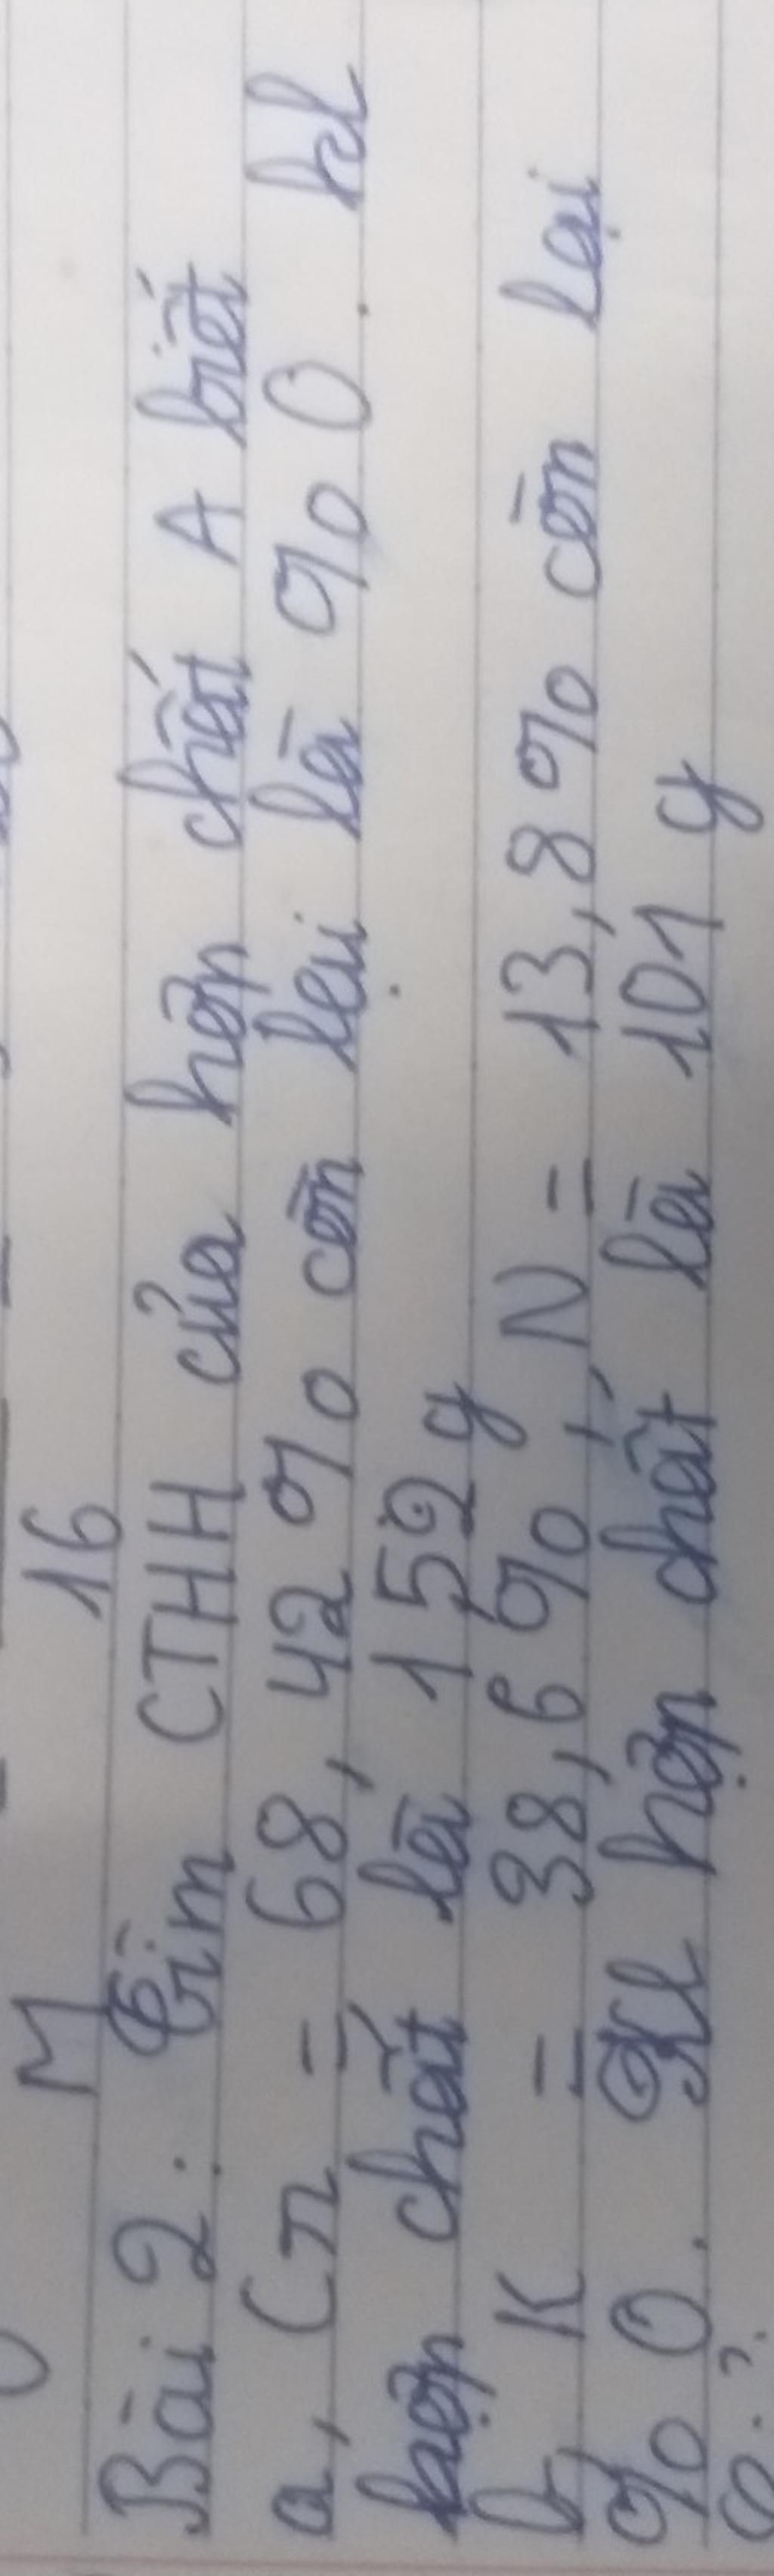 M 16
Bài 2. Tìm CTHH của hợp chất A biết
a, Cr = 68,42 % còn lại là % O. kl
hợp chất là 152 g
b, K = 38,6 %, N = 13,8 % còn lại
% O. Kl hợp chất là 101 g